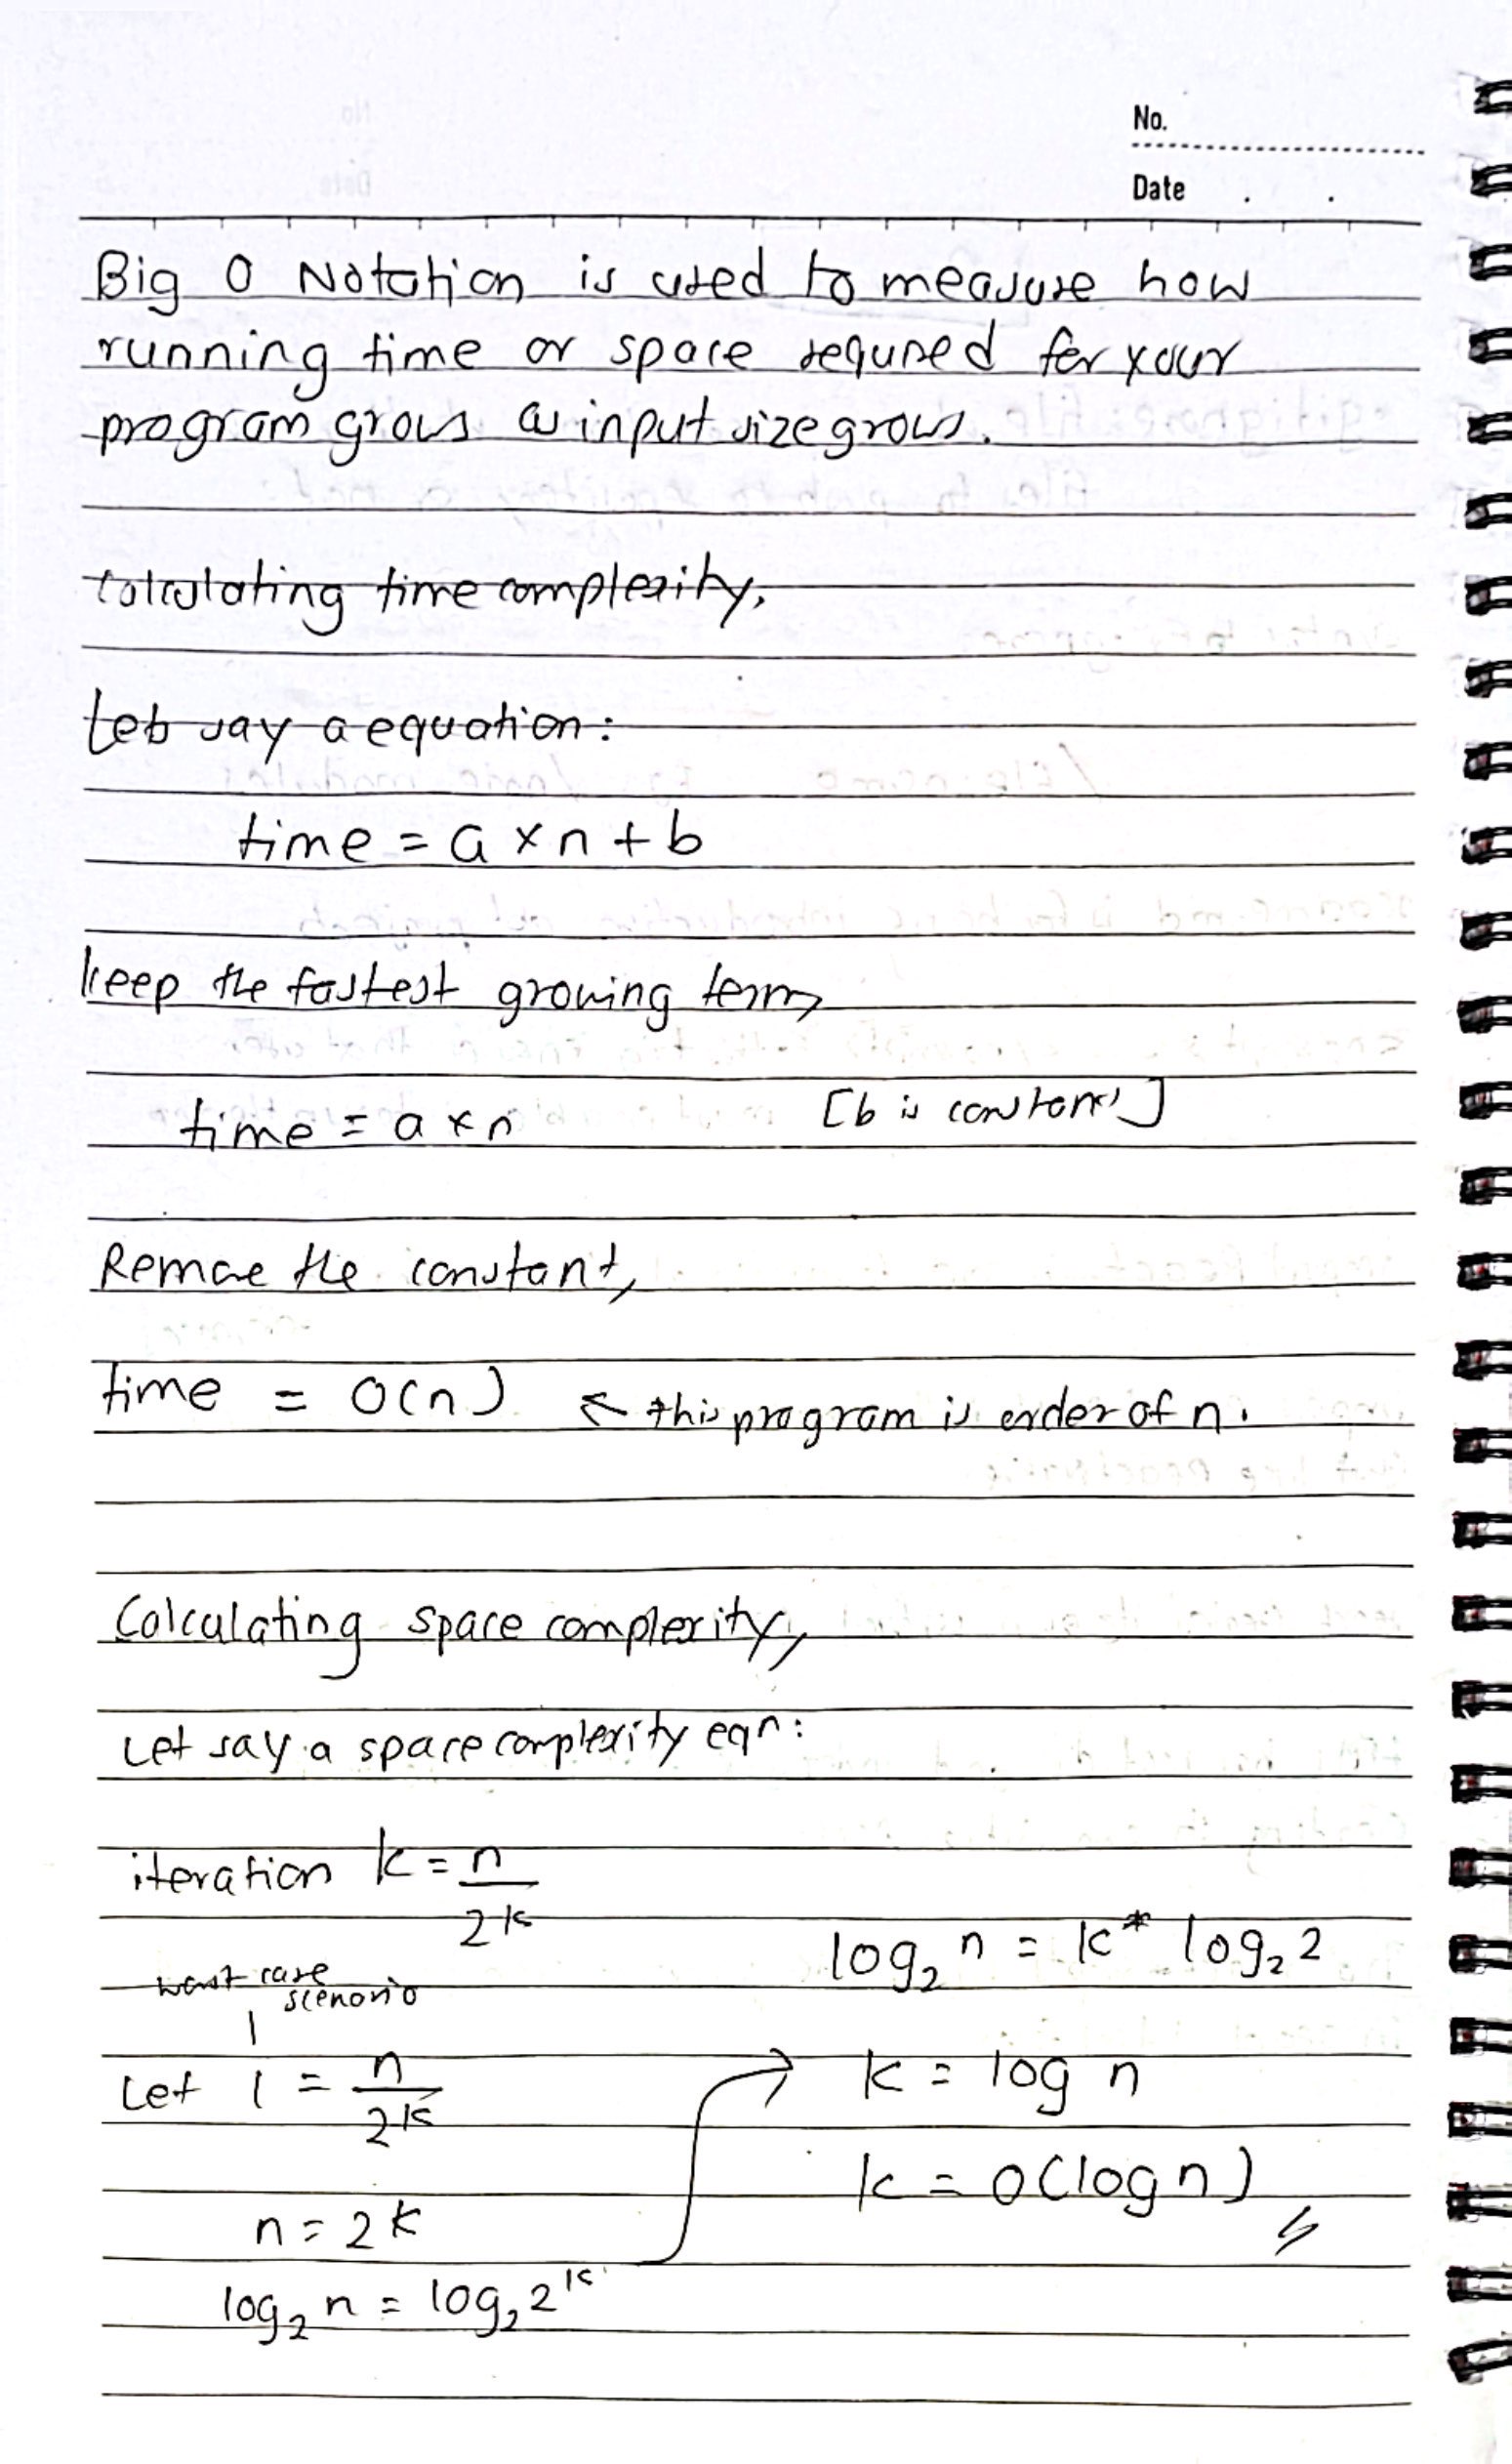 No.
Date . .
Big O Notation is used to measure how
running time or space required for your
program grows as input size grows.
Calculating time complexity,
Let say a equation:
time = a × n + b
keep the fastest growing term,
time = a × n [b is constant]
Remove the constant,
time = O(n) ← this program is order of n.
Calculating space complexity,
Let say a space complexity eqn:
iteration k = n/2^k
worst case
scenario
Let 1 = n/2^k
n = 2^k
log₂ n = log₂ 2^k
log₂ n = k * log₂ 2
→ k = log n
k = O(log n)